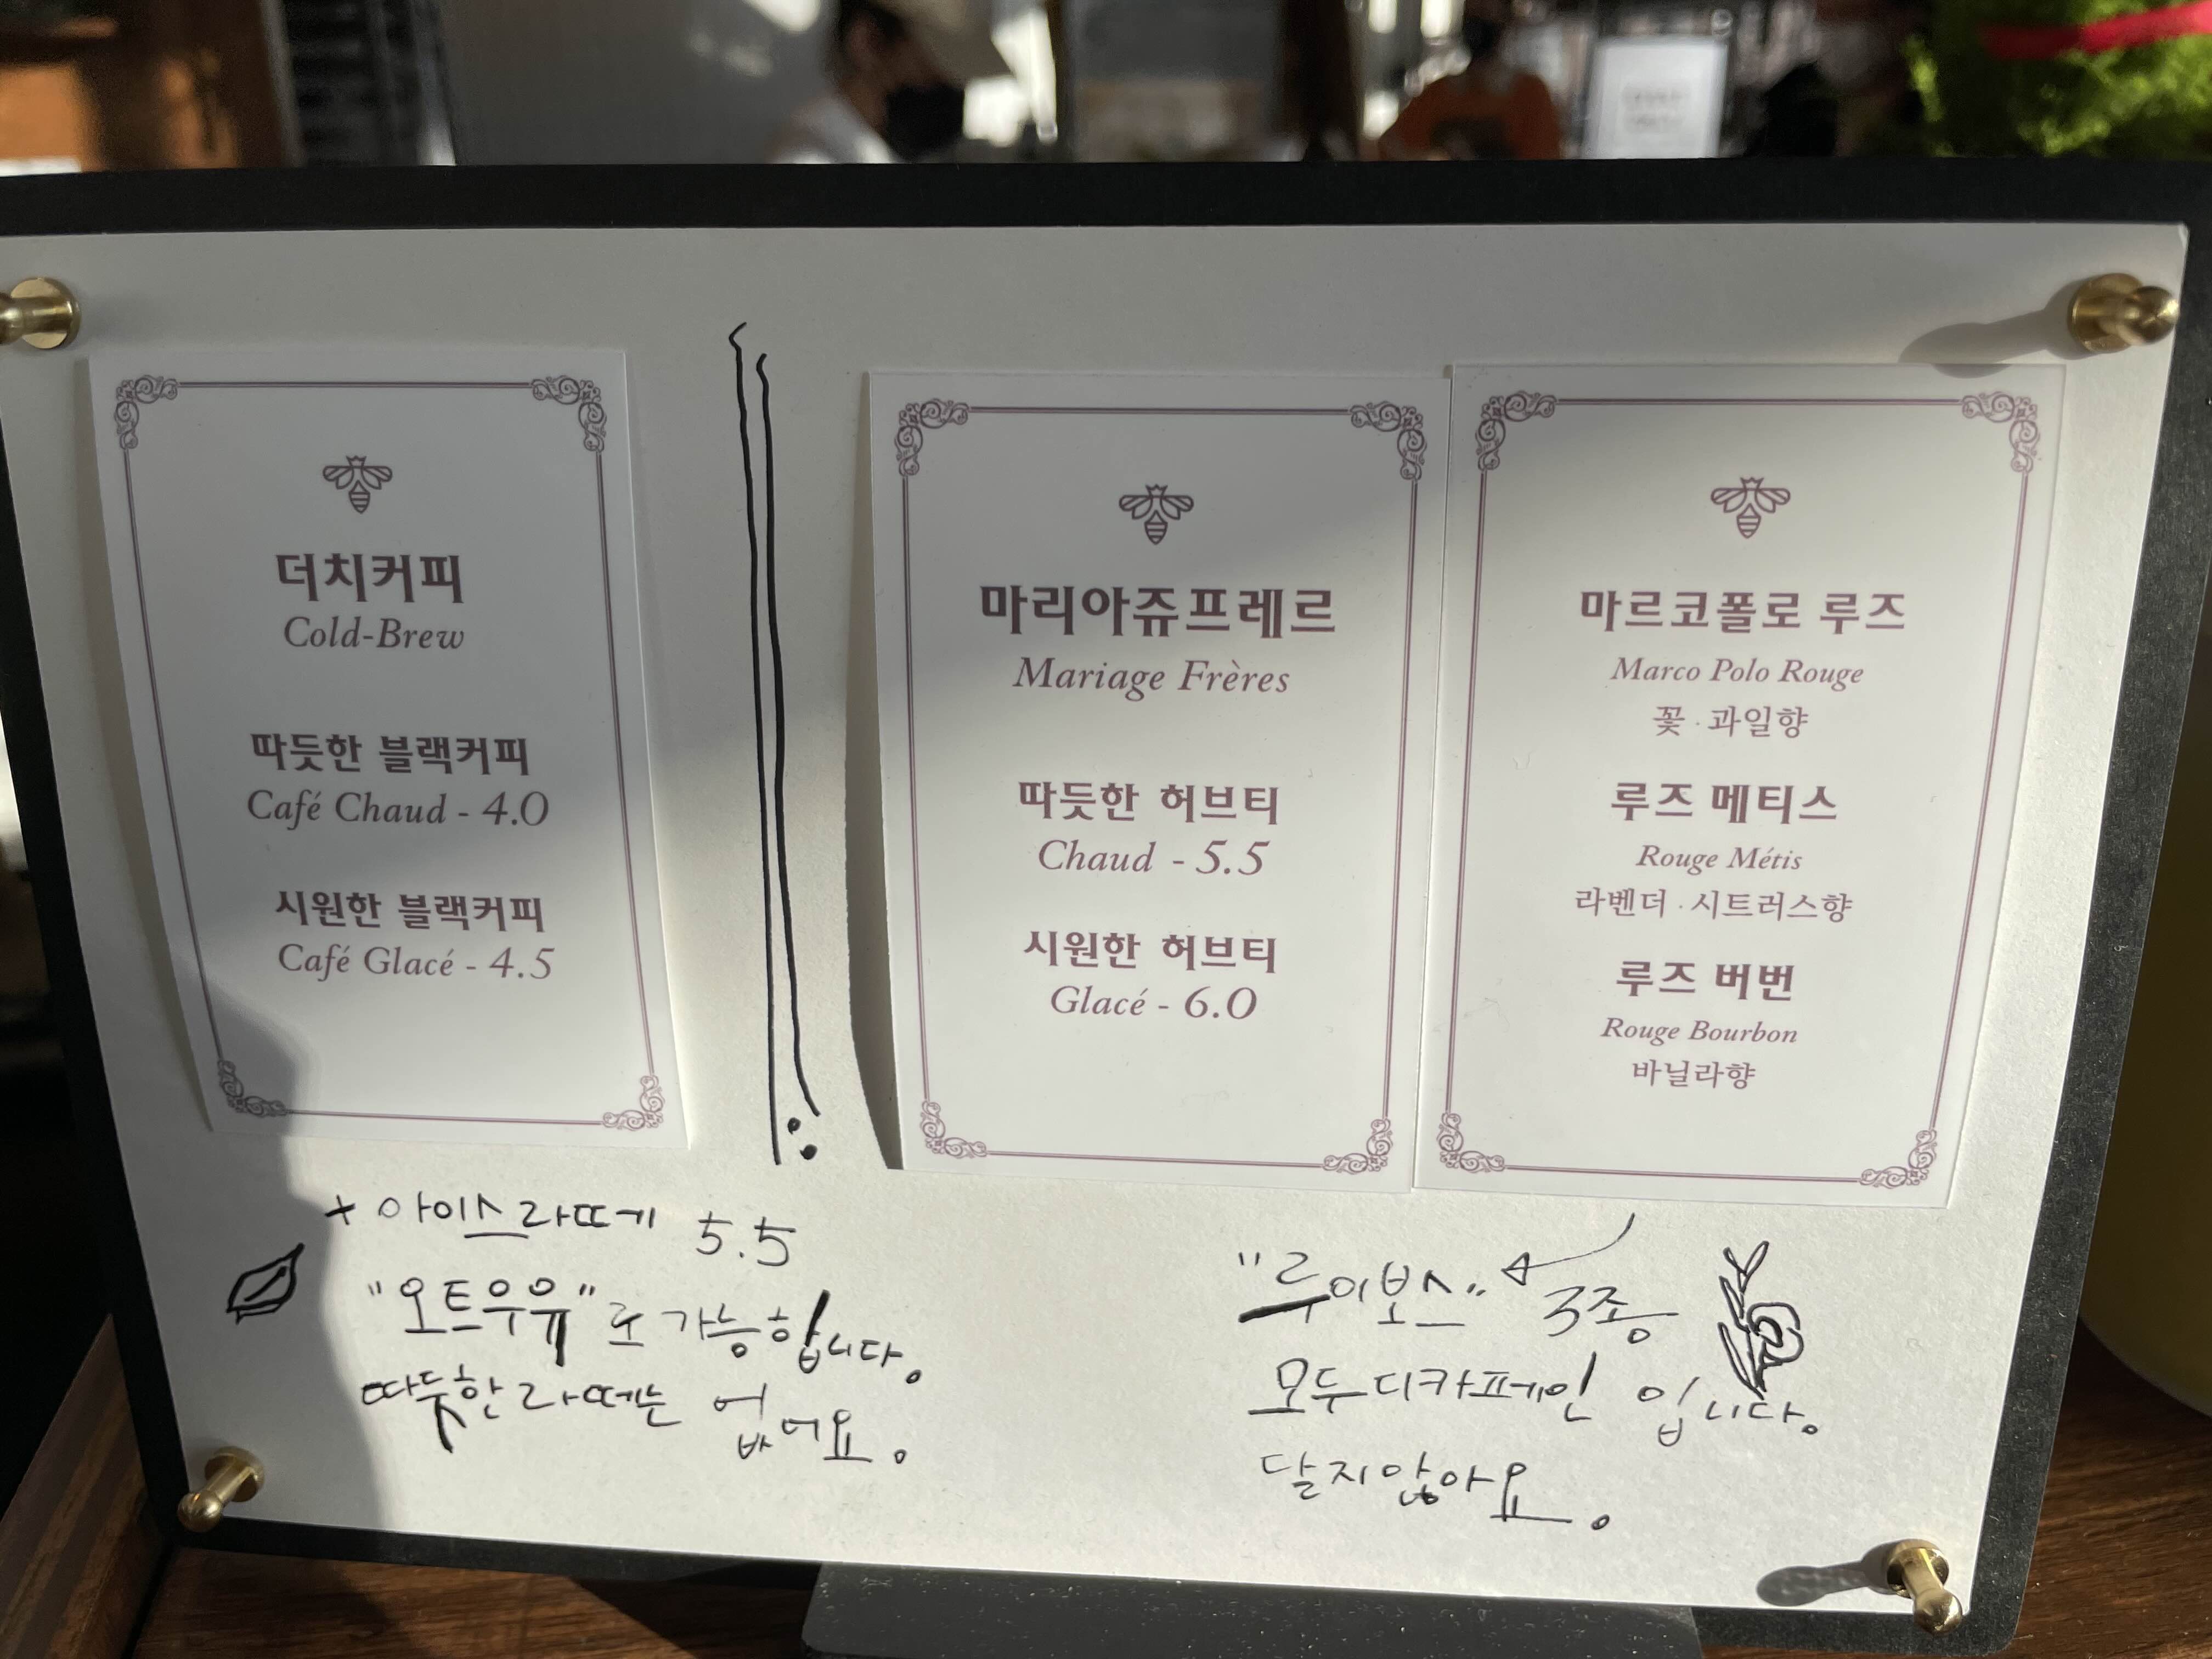 더치커피
Cold-Brew
따듯한 블랙커피
Café Chaud - 4.0
시원한 블랙커피
Café Glacé - 4.5
마리아쥬프레르
Mariage Frères
따듯한 허브티
Chaud - 5.5
시원한 허브티
Glacé - 6.0
마르코폴로 루즈
Marco Polo Rouge
꽃·과일향
루즈 메티스
Rouge Métis
라벤더·시트러스향
루즈 버번
Rouge Bourbon
바닐라향
+ 아이스라떼 5.5
"오트우유"로 가능합니다.
따듯한 라떼는 없어요.
"루이보스" 3종
모두 디카페인 입니다.
달지않아요.